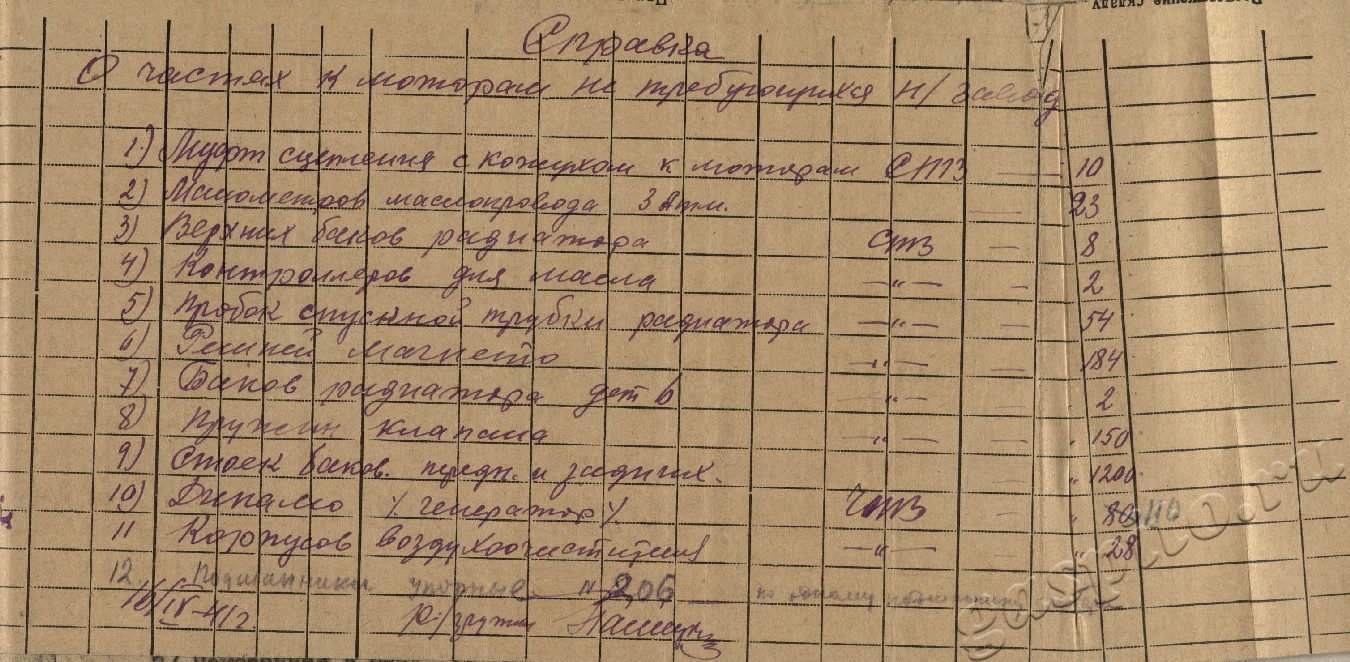 Справка
О частях к моторам не требующихся н/завод
1) Муфт сцепления с кожухом к моторам СТЗ — 10
2) Манометров маслопровода 3 атм. — 23
3) Верхних баков радиатора СТЗ — 8
4) Контроллеров для масла —"— — 2
5) Пробок спускной трубки радиатора —"— — 54
6) Ремней магнето —"— — 184
7) Баков радиатора дет 6 —"— — " 2
8) Пружин клапана —"— — " 150
9) Стоек баков. передн. и задних. — " 1200
10) Динамо /генератор/ ЧТЗ — " 80 110
11 Корпусов воздухоочистителя —"— — " 28
12. Подшипники упорные № 206 по одному
16/IV-41г.